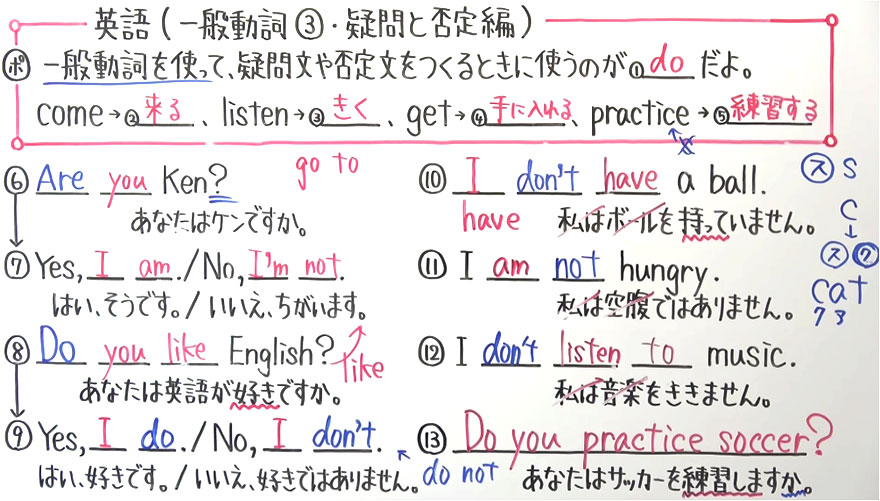 英語(一般動詞③・疑問と否定編)
ポ 一般動詞を使って、疑問文や否定文をつくるときに使うのが①doだよ。
come→②来る、listen→③きく、get→④手に入れる、practice→⑤練習する
⑥ Are you Ken?
go to
あなたはケンですか。
⑦ Yes, I am./No, I'm not.
はい、そうです。/いいえ、ちがいます。
⑧ Do you like English?
like
あなたは英語が好きですか。
⑨ Yes, I do./No, I don't.
do not
はい、好きです。/いいえ、好きではありません。
⑩ I don't have a ball.
have
私はボールを持っていません。
ス s
c
↓
ス ク
cat
⑪ I am not hungry.
私は空腹ではありません。
⑫ I don't listen to music.
私は音楽をききません。
⑬ Do you practice soccer?
あなたはサッカーを練習しますか。